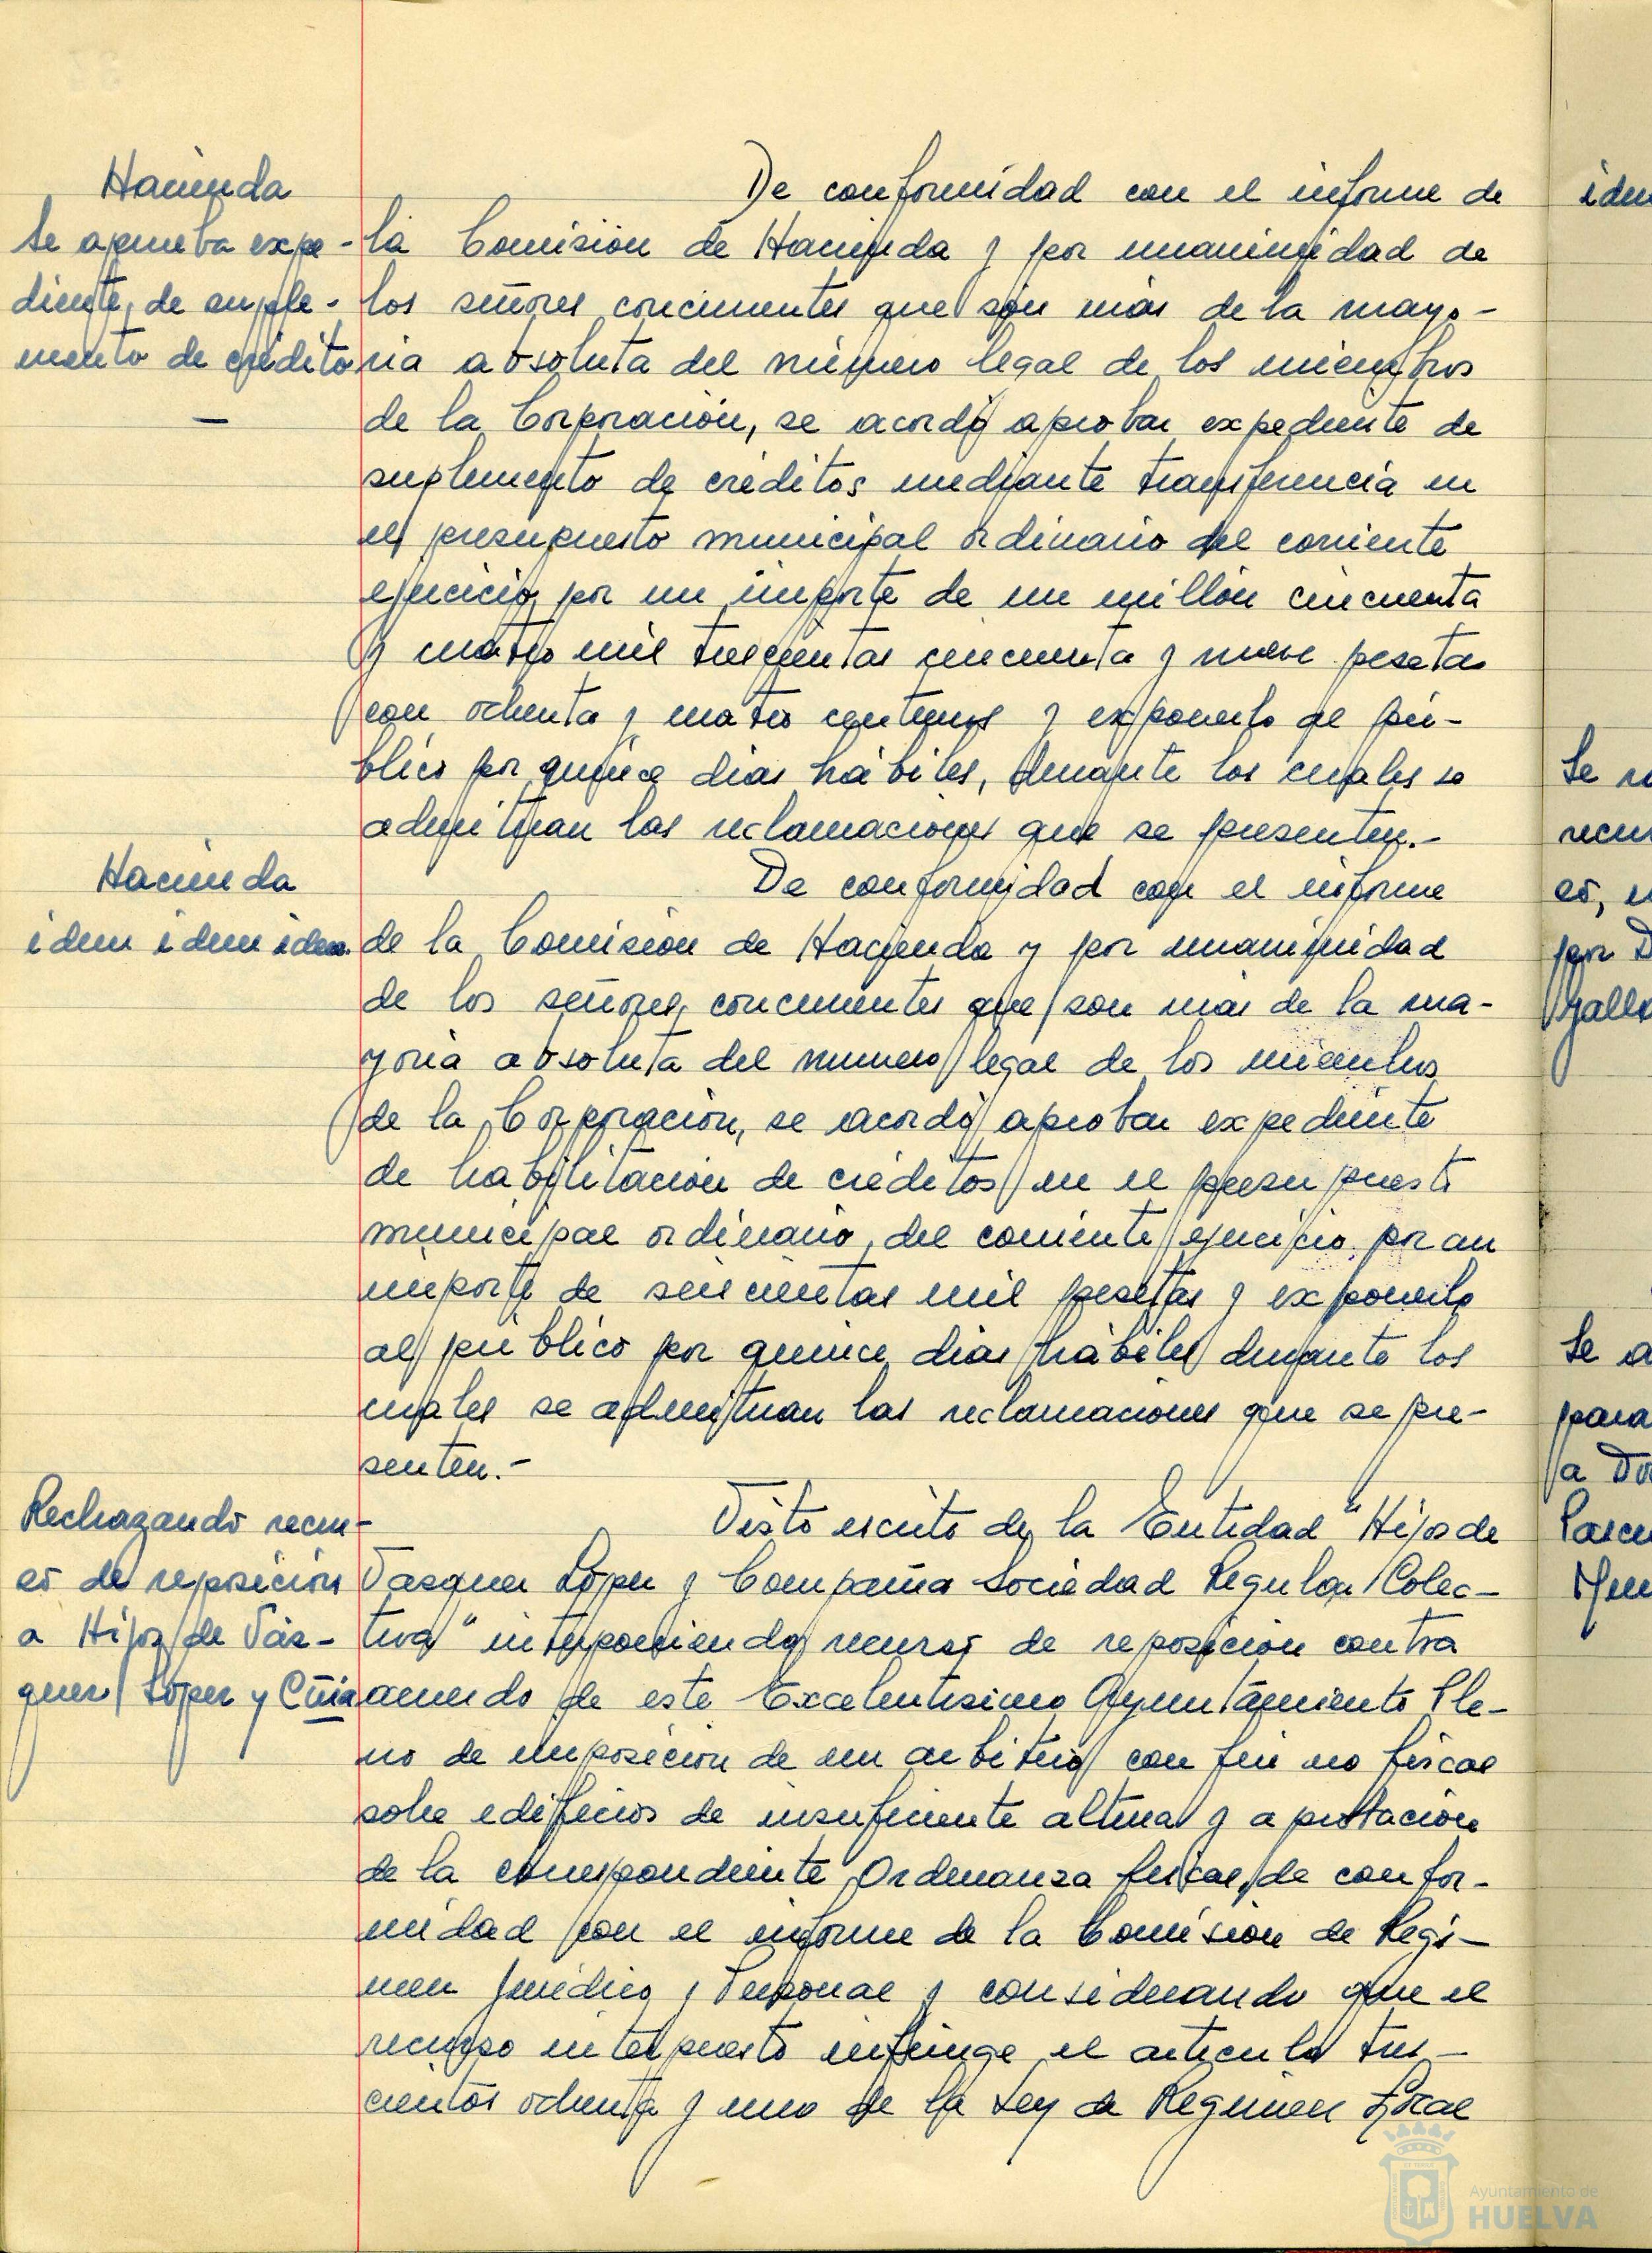 Hacienda
Se aprueba expe-
diente de suple-
mento de crédito
—
De conformidad con el informe de
la Comisión de Hacienda y por unanimidad de
los señores concurrentes que son más de la mayo-
ria absoluta del número legal de los miembros
de la Corporación, se acordó aprobar expediente de
suplemento de créditos mediante transferencia en
el presupuesto municipal ordinario del corriente
ejercicio por un importe de un millón cincuenta
y cuatro mil trescientas cincuenta y nueve pesetas
con ochenta y cuatro centimos y exponerlo al pú-
blico por quince dias hábiles, durante los cuales se
admitiran las reclamaciones que se presenten.-
Hacienda
idem idem idem.
De conformidad con el informe
de la Comisión de Hacienda y por unanimidad
de los señores concurrentes que son más de la ma-
yoria absoluta del numero legal de los miembros
de la Corporación, se acordó aprobar expediente
de habilitación de créditos en el presupuesto
municipal ordinario del corriente ejercicio por un
importe de seiscientas mil pesetas y exponerlo
al público por quince dias hábiles durante los
cuales se admitiran las reclamaciones que se pre-
senten.-
Rechazando recur-
so de reposición
a Hijos de Vás-
quez López y Cñia
Visto escrito de la Entidad "Hijos de
Vasquez López y Compañia Sociedad Regular Colec-
tiva" interponiendo recurso de reposición contra
acuerdo de este Excelentisimo Ayuntamiento Ple-
no de imposición de un arbitrio con fin no fiscal
sobre edificios de insuficiente altura y aprobación
de la correspondiente Ordenanza fiscal, de confor-
midad con el informe de la Comisión de Regi-
men Juridico y Personal y considerando que el
recurso interpuesto infringe el articulo tres-
cientos ochenta y uno de la Ley de Regimen Local
idem
Se
recur
so,
por D
Se a
para
a Do
Ayuntamiento de
HUELVA